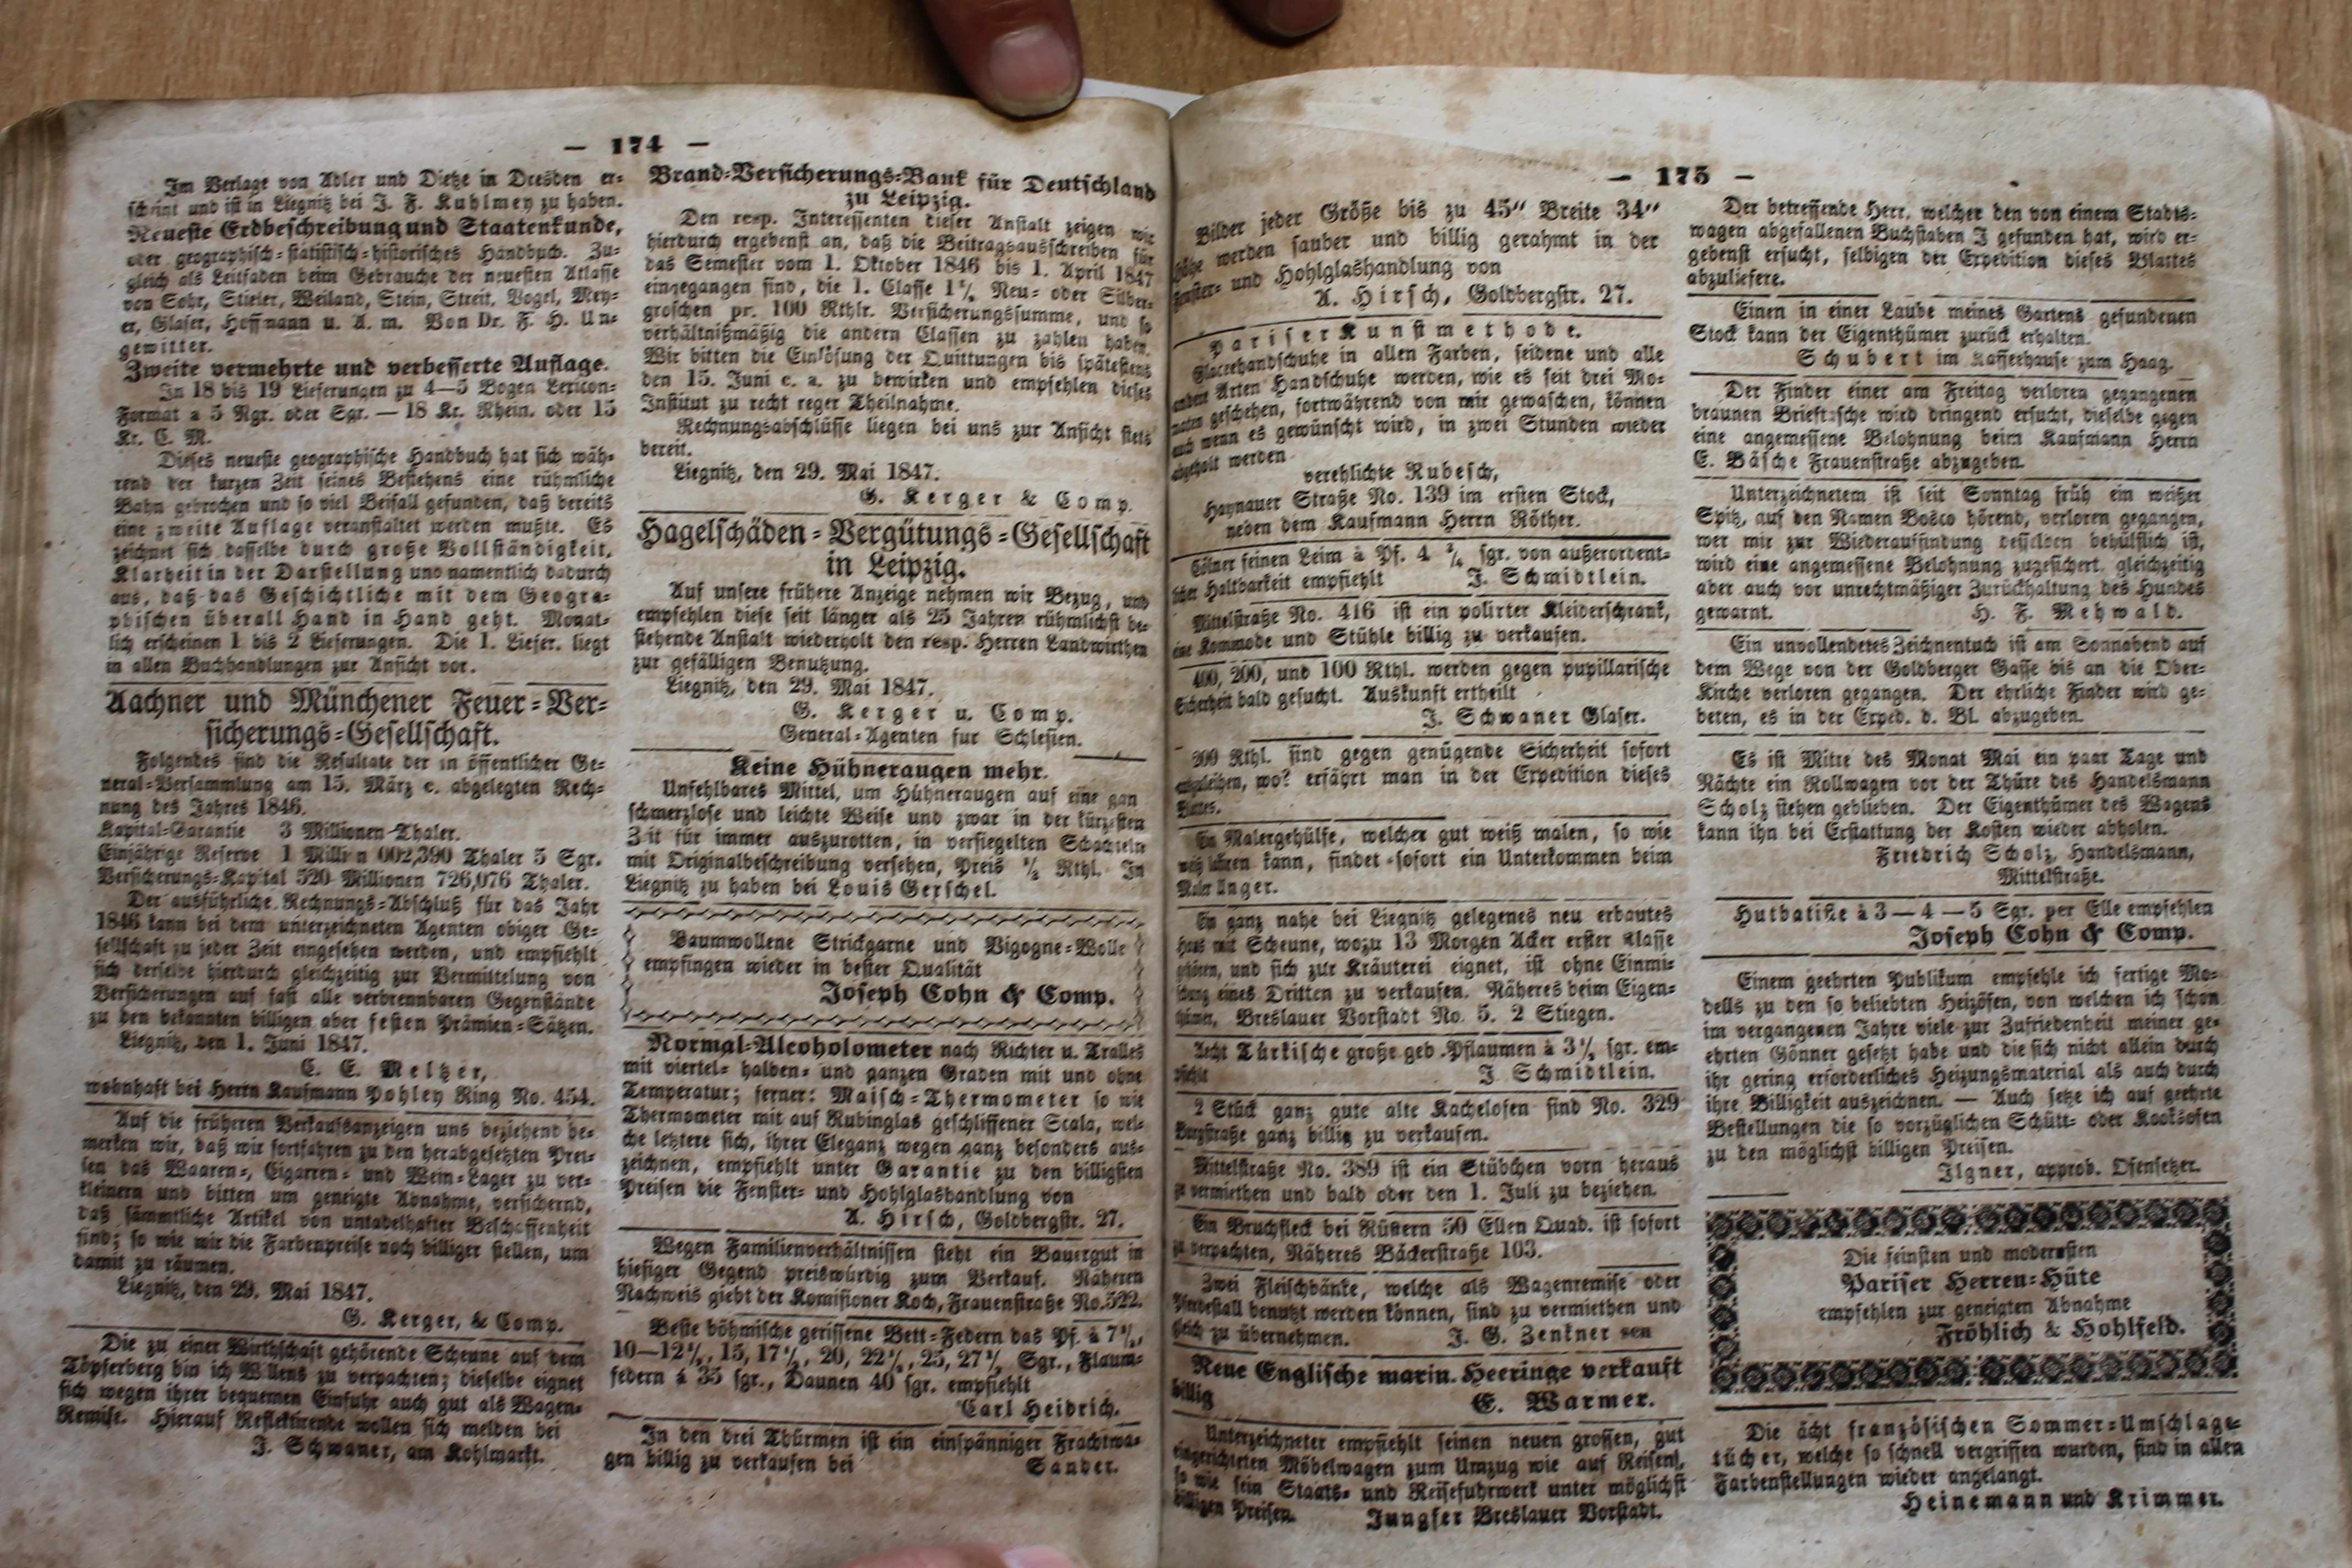 — 174 —
Im Verlage von Adler und Dietze in Dresden er-
scheint und ist in Liegnitz bei J. F. Kuhlmey zu haben.
Neueste Erdbeschreibung und Staatenkunde,
oder geographisch-statistisch-historisches Handbuch. Zu-
gleich als Leitfaden beim Gebrauche der neuesten Atlasse
von Sohr, Stieler, Weiland, Stein, Streit, Vogel, Mey-
er, Glaser, Hoffmann u. A. m. Von Dr. F. H. Un-
gewitter.
Zweite vermehrte und verbesserte Auflage.
In 18 bis 19 Lieferungen zu 4—5 Bogen Lexicon-
Format a 5 Ngr. oder Sgr. — 18 Kr. Rhein. oder 15
Kr. C. M.
Dieses neueste geographische Handbuch hat sich wäh-
rend der kurzen Zeit seines Bestehens eine rühmliche
Bahn gebrochen und so viel Beifall gefunden, daß bereits
eine zweite Auflage veranstaltet werden mußte. Es
zeichnet sich dasselbe durch große Vollständigkeit,
Klarheit in der Darstellung und namentlich dadurch
aus, daß das Geschichtliche mit dem Geogra-
phischen überall Hand in Hand geht. Monat-
lich erscheinen 1 bis 2 Lieferungen. Die 1. Liefer. liegt
in allen Buchhandlungen zur Ansicht vor.
Aachner und Münchener Feuer-Ver-
sicherungs-Gesellschaft.
Folgendes sind die Resultate der in öffentlicher Ge-
neral-Versammlung am 15. März c. abgelegten Rech-
nung des Jahres 1846.
Kapital-Garantie 3 Millionen Thaler.
Einjährige Reserve 1 Million 002,390 Thaler 5 Sgr.
Versicherungs-Kapital 520 Millionen 726,076 Thaler.
Der ausführliche Rechnungs-Abschluß für das Jahr
1846 kann bei dem unterzeichneten Agenten obiger Ge-
sellschaft zu jeder Zeit eingesehen werden, und empfiehlt
sich derselbe hierdurch gleichzeitig zur Vermittelung von
Versicherungen auf fast alle verbrennbaren Gegenstände
zu den bekannten billigen aber festen Prämien-Sätzen.
Liegnitz, den 1. Juni 1847.
C. E. Meltzer,
wohnhaft bei Herrn Kaufmann Pohley Ring No. 454.
Auf die früheren Verkaufsanzeigen uns beziehend be-
merken wir, daß wir fortfahren zu den herabgesetzten Prei-
sen das Waaren-, Cigarren- und Wein-Lager zu ver-
kleinern und bitten um geneigte Abnahme, versichernd,
daß sämmtliche Artikel von untadelhafter Beschaffenheit
sind; so wie wir die Farbenpreise noch billiger stellen, um
damit zu räumen.
Liegnitz, den 29. Mai 1847.
G. Kerger, & Comp.
Die zu einer Wirthschaft gehörende Scheune auf dem
Töpferberg bin ich Willens zu verpachten; dieselbe eignet
sich wegen ihrer bequemen Einfuhr auch gut als Wagen-
Remise. Hierauf Reflektirende wollen sich melden bei
J. Schwaner, am Kohlmarkt.
Brand-Versicherungs-Bank für Deutschland
zu Leipzig.
Den resp. Interessenten dieser Anstalt zeigen wir
hierdurch ergebenst an, daß die Beitragsausschreiben für
das Semester vom 1. Oktober 1846 bis 1. April 1847
eingegangen sind, die 1. Classe 1 Neu- oder Silber-
groschen pr. 100 Rthlr. Versicherungssumme, und so
verhältnißmäßig die andern Classen zu zahlen haben.
Wir bitten die Einlösung der Quittungen bis spätestens
den 15. Juni c. a. zu bewirken und empfehlen dieses
Institut zu recht reger Theilnahme.
Rechnungsabschlüsse liegen bei uns zur Ansicht stets
bereit.
Liegnitz, den 29. Mai 1847.
G. Kerger & Comp.
Hagelschäden-Vergütungs-Gesellschaft
in Leipzig.
Auf unsere frühere Anzeige nehmen wir Bezug, und
empfehlen diese seit länger als 25 Jahren rühmlichst be-
stehende Anstalt wiederholt den resp. Herren Landwirthen
zur gefälligen Benutzung.
Liegnitz, den 29. Mai 1847.
G. Kerger u. Comp.
General-Agenten für Schlesien.
Keine Hühneraugen mehr.
Unfehlbares Mittel, um Hühneraugen auf eine gan
schmerzlose und leichte Weise und zwar in der kürzesten
Zeit für immer auszurotten, in versiegelten Schachteln
mit Originalbeschreibung versehen, Preis ½ Rthl. In
Liegnitz zu haben bei Louis Gerschel.
Baumwollene Strickgarne und Vigogne-Wolle
empfingen wieder in bester Qualität
Joseph Cohn & Comp.
Normal-Alcoholometer nach Richter u. Tralles
mit viertel- halben- und ganzen Graden mit und ohne
Temperatur; ferner: Maisch-Thermometer so wie
Thermometer mit auf Rubinglas geschliffener Scala, wel-
che letztere sich, ihrer Eleganz wegen ganz besonders aus-
zeichnen, empfiehlt unter Garantie zu den billigsten
Preisen die Fenster- und Hohlglashandlung von
A. Hirsch, Goldbergstr. 27.
Wegen Familienverhältnissen steht ein Bauergut in
hiesiger Gegend preiswürdig zum Verkauf. Näheren
Nachweis giebt der Komisioner Koch, Frauenstraße No. 522.
Beste böhmische gerissene Bett-Federn das Pf. à 7½,
10—12½, 15, 17½, 20, 22½, 25, 27½ Sgr., Flaum-
federn à 35 sgr., Daunen 40 sgr. empfiehlt
Carl Heidrich.
In den drei Thürmen ist ein einspänniger Frachtwa-
gen billig zu verkaufen bei Sander.
— 175 —
Bilder jeder Größe bis zu 45" Breite 34"
Höhe werden sauber und billig gerahmt in der
Fenster- und Hohlglashandlung von
A. Hirsch, Goldbergstr. 27.
Pariser Kunstmethode.
Glaceehandschuhe in allen Farben, seidene und alle
andere Arten Handschuhe werden, wie es seit drei Mo-
naten geschehen, fortwährend von mir gewaschen, können
auch wenn es gewünscht wird, in zwei Stunden wieder
abgeholt werden
verehlichte Rubesch,
Haynauer Straße No. 139 im ersten Stock,
neben dem Kaufmann Herrn Röther.
Cölner feinen Leim à Pf. 4 sgr. von außerordent-
licher Haltbarkeit empfiehlt J. Schmidtlein.
Mittelstraße No. 416 ist ein polirter Kleiderschrank,
eine Kommode und Stühle billig zu verkaufen.
400, 200, und 100 Rthl. werden gegen pupillarische
Sicherheit bald gesucht. Auskunft ertheilt
J. Schwaner Glaser.
200 Rthl. sind gegen genügende Sicherheit sofort
auszuleihen, wo? erfährt man in der Expedition dieses
Blattes.
Ein Malergehülfe, welcher gut weiß malen, so wie
kann, findet sofort ein Unterkommen beim
Maler Unger.
Ein ganz nahe bei Liegnitz gelegenes neu erbautes
Haus mit Scheune, wozu 13 Morgen Acker erster Klasse
gehören, und sich zur Kräuterei eignet, ist ohne Einmi-
schung eines Dritten zu verkaufen. Näheres beim Eigen-
thümer, Breslauer Vorstadt No. 5. 2 Stiegen.
Aecht Türkische große geb. Pflaumen à 3½ sgr. em-
pfiehlt J. Schmidtlein.
2 Stück ganz gute alte Kachelofen sind No. 329
Burgstraße ganz billig zu verkaufen.
Mittelstraße No. 389 ist ein Stübchen vorn heraus
zu vermiethen und bald oder den 1. Juli zu beziehen.
Ein Bruchfleck bei Rüstern 50 Ellen Quad. ist sofort
zu verpachten, Näheres Bäckerstraße 103.
Zwei Fleischbänke, welche als Wagenremise oder
Pferdestall benutzt werden können, sind zu vermiethen und
gleich zu übernehmen. J. G. Zenkner sen
Neue Englische marin. Heeringe verkauft
billig E. Warmer.
Unterzeichneter empfiehlt seinen neuen grossen, gut
eingerichteten Möbelwagen zum Umzug wie auf Reisen,
so wie sein Staats- und Reisefuhrwerk unter möglichst
billigen Preisen. Jungfer Breslauer Vorstadt.
Der betreffende Herr, welcher den von einem Stadts-
wagen abgefallenen Buchstaben J gefunden hat, wird er-
gebenst ersucht, selbigen der Expedition dieses Blattes
abzuliefere.
Einen in einer Laube meines Gartens gefundenen
Stock kann der Eigenthümer zurück erhalten.
Schubert im Kafferhause zum Haag.
Der Finder einer am Freitag verloren gegangenen
braunen Brieftasche wird dringend ersucht, dieselbe gegen
eine angemessene Belohnung beim Kaufmann Herrn
E. Bäsche Frauenstraße abzugeben.
Unterzeichnetem ist seit Sonntag früh ein weißer
Spitz, auf den Namen Bosco hörend, verloren gegangen,
wer mir zur Wiederauffindung desselben behülflich ist,
wird eine angemessene Belohnung zugesichert, gleichzeitig
aber auch vor unrechtmäßiger Zurückhaltung des Hundes
gewarnt. H. F. Mehwald.
Ein unvollendetes Zeichnentuch ist am Sonnabend auf
dem Wege von der Goldberger Gasse bis an die Ober-
Kirche verloren gegangen. Der ehrliche Finder wird ge-
beten, es in der Exped. d. Bl. abzugeben.
Es ist Mitte des Monat Mai ein paar Tage und
Nächte ein Rollwagen vor der Thüre des Handelsmann
Scholz stehen geblieben. Der Eigenthümer des Wagens
kann ihn bei Erstattung der Kosten wieder abholen.
Friedrich Scholz, Handelsmann,
Mittelstraße.
Hutbatiste à 3—4—5 Sgr. per Elle empfehlen
Joseph Cohn & Comp.
Einem geehrten Publikum empfehle ich fertige Mo-
dells zu den so beliebten Heizöfen, von welchen ich schon
im vergangenen Jahre viele zur Zufriedenheit meiner ge-
ehrten Gönner gesetzt habe und die sich nicht allein durch
ihr gering erforderliches Heizungsmaterial als auch durch
ihre Billigkeit auszeichnen. — Auch setze ich auf geehrte
Bestellungen die so vorzüglichen Schütt- oder Kooksofen
zu den möglichst billigen Preisen.
Ilgner, approb. Ofensetzer.
Die feinsten und modernsten
Pariser Herren-Hüte
empfehlen zur geneigten Abnahme
Fröhlich & Hohlfeld.
Die ächt französischen Sommer-Umschlage-
tücher, welche so schnell vergriffen wurden, sind in allen
Farbenstellungen wieder angelangt.
Heinemann und Krimmer.